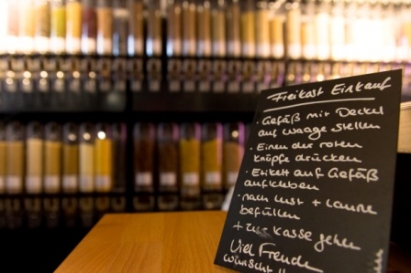 Freikost Einkauf
· Gefäß mit Deckel
auf Waage stellen
· Einen der roten
Knöpfe drücken
· Etikett auf Gefäß
aufkleben
· nach Lust + Laune
befüllen
+ zur Kasse gehen
Viel Freude
wünscht